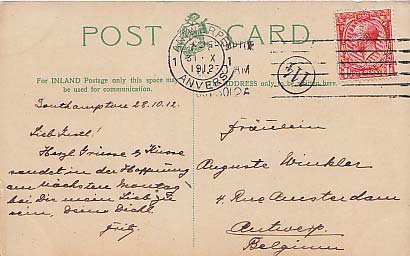 POST CARD.
For INLAND Postage only this space may
be used for communication.
ADDRESS only to be written here.
ANTWERPEN
1 1
31 X
1912
ANVERS
114
Southampton 28.10.12.
Fräulein
Auguste Winkler
4. Rue Amsterdam
Antwerp.
Belgium
Herzl Grüsse & Küsse
sendet in der Hoffnung
am nächsten Montag
bei Dir mein Lieb zu
sein, Deine Dich l.
Fritz.